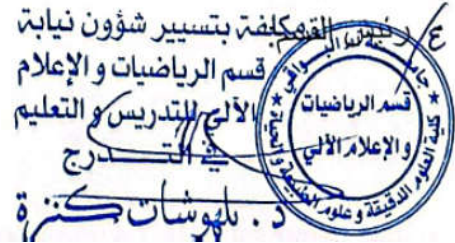 ع/ رئيس القسم
المكلفة بتسيير شؤون نيابة
قسم الرياضيات و الإعلام
الآلي للتدريس و التعليم
في التـــدرج
د. بلهوشات كنزة
قسم الرياضيات
و الإعلام الآلي
كلية العلوم الدقيقة و علوم الطبيعة و الحياة